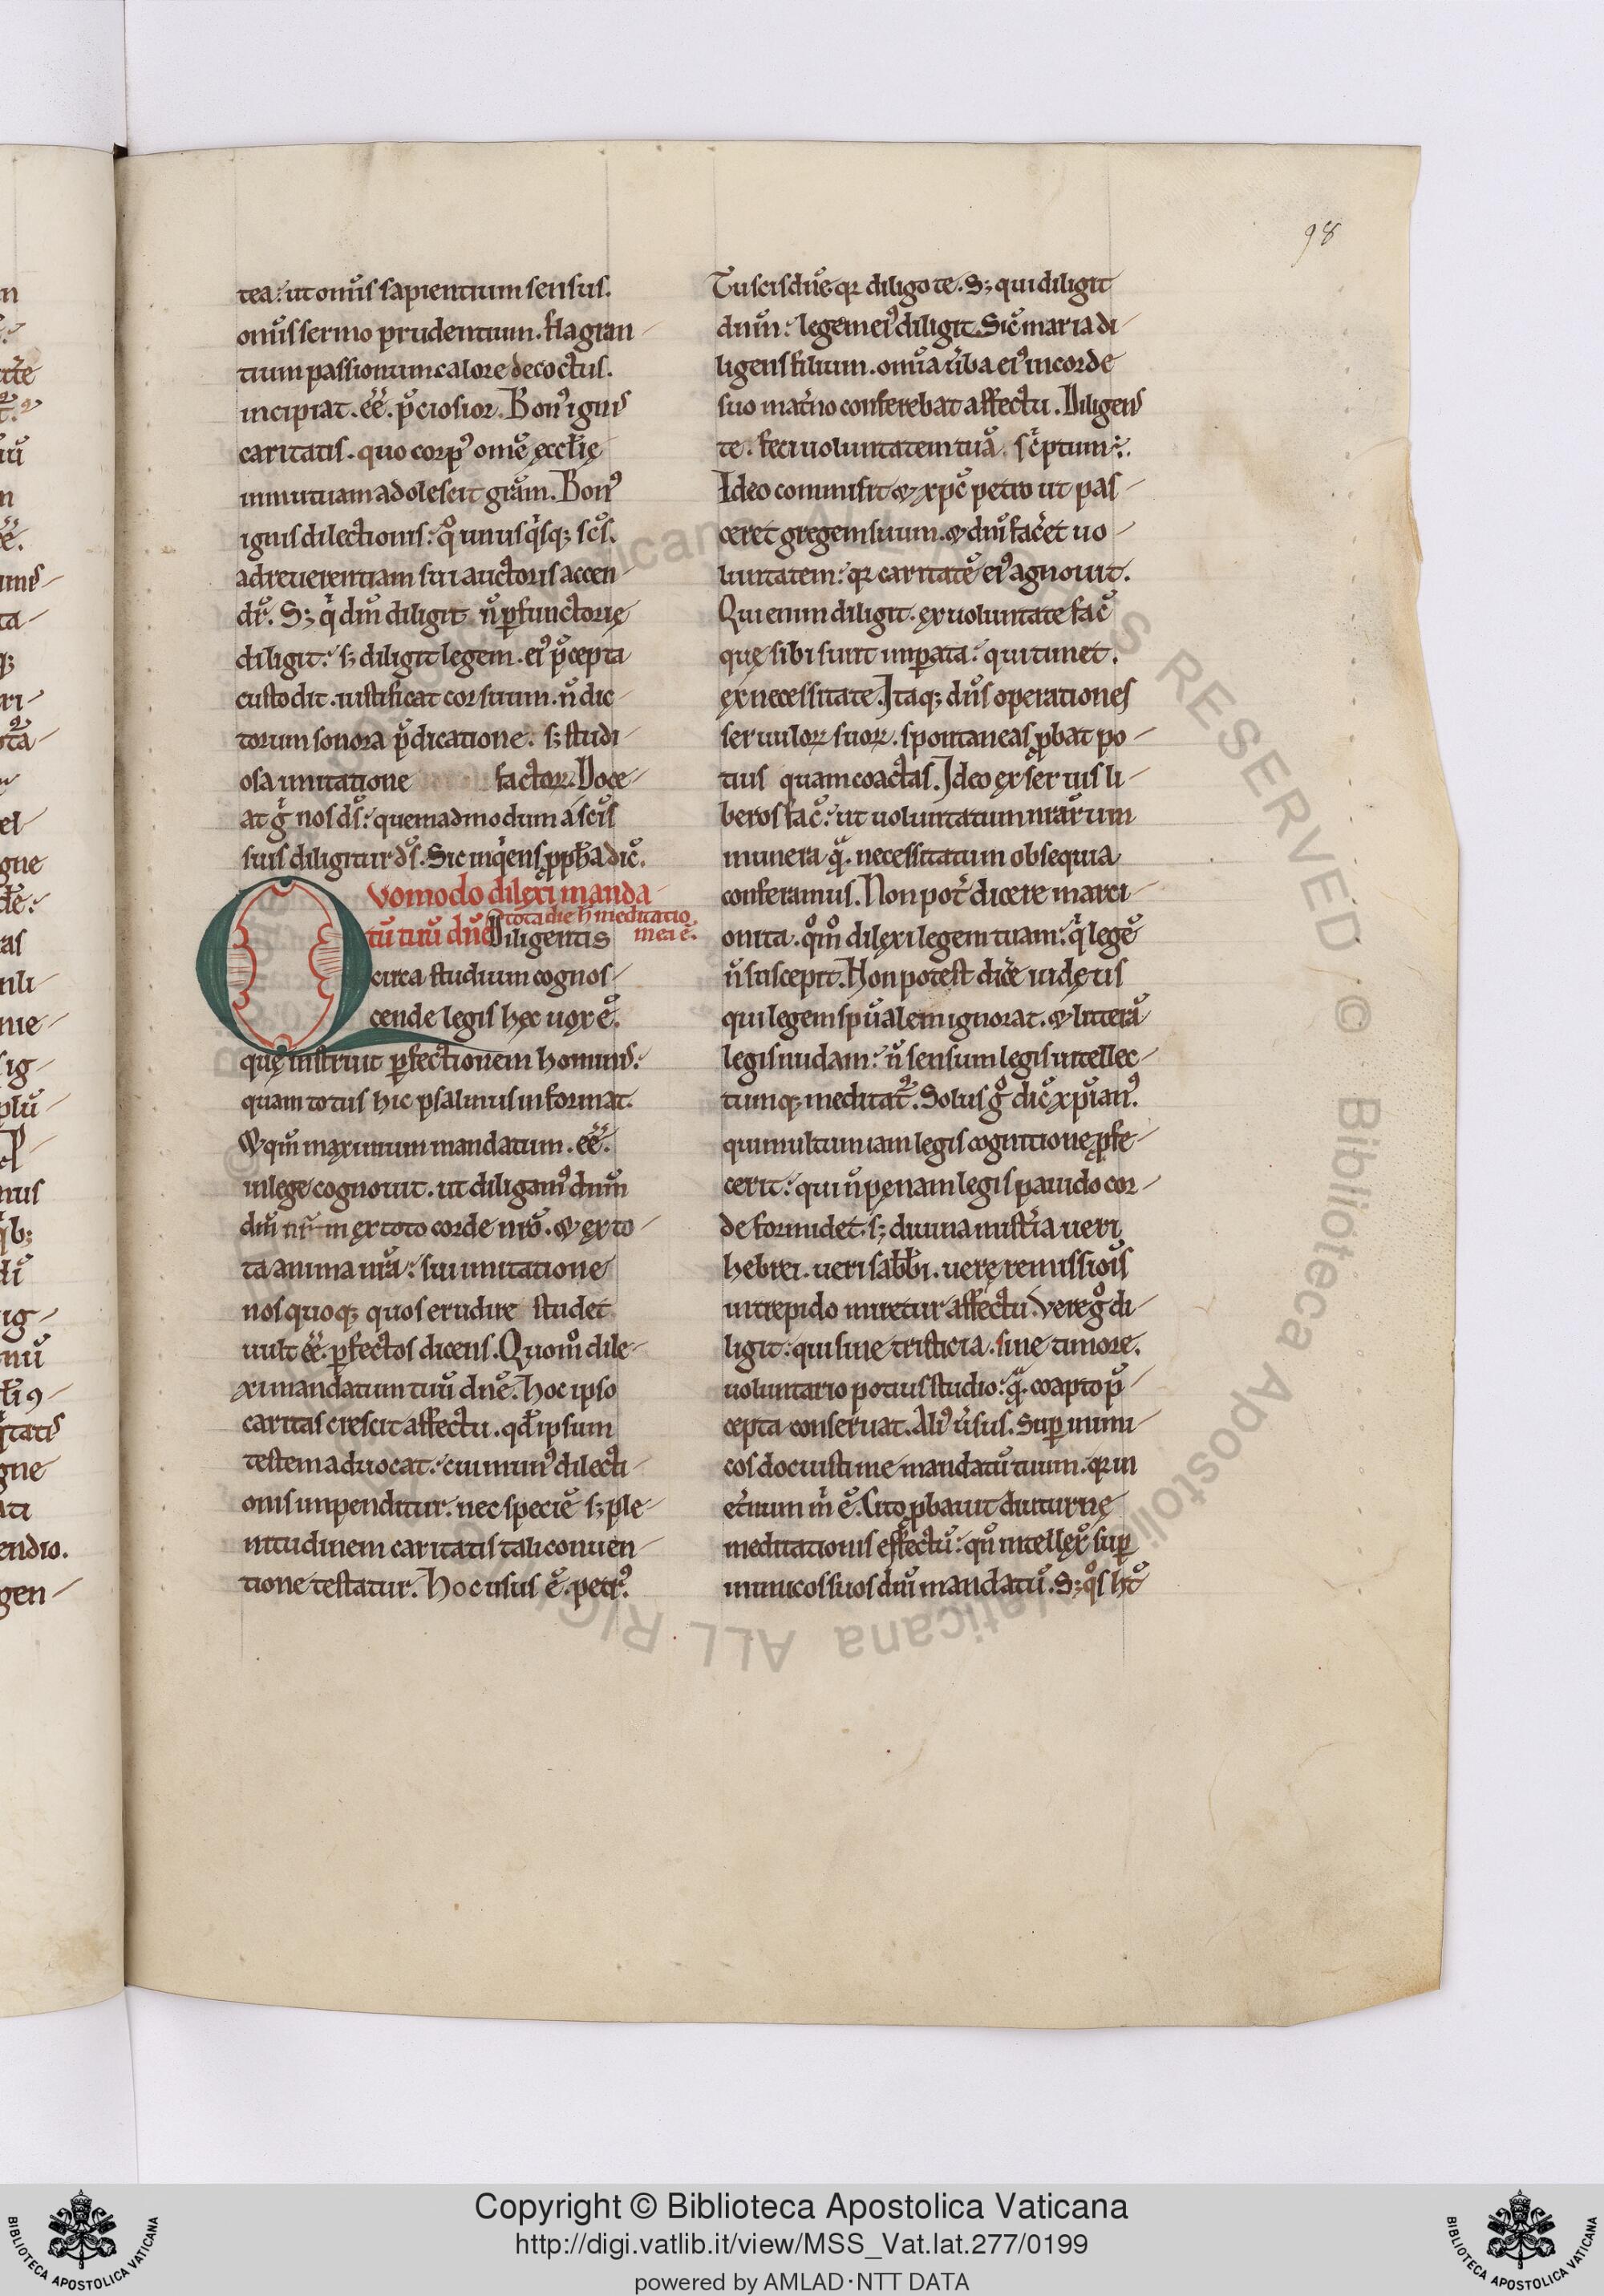 98
tea: ut om̄is sapientium sensus.
om̄is sermo prudentium. flagran-
tium passionum calore decoctus.
incipiat. ēē. p̄ciosior. Bonꝰ ignis
caritatis. quo corpꝰ om̄e eccl̄ię
in mutuam adolescit grām. Bonꝰ
ignis dilectionis: q̊ unusq̇sq; sc̄s.
ad reuerentiam sui auctoris accen-
dr̄. S; q̇ dn̄m diligit n̄ ꝑfunctorię
diligit: s; diligit legem. eiꝰ p̄cepta
custodit. iustificat cor suum. n̄ dic-
torum sonora p̄dicatione. s; studi-
osa imitatione factoꝝ. Doce-
at g̊ nos ds̄: quemadmodum a sc̄is
suis diligitur ds̄. Sic inq̇ens ꝓph̄a dic̄.
Quomodo dilexi manda-
tū tuū dn̄e tota die h̄ meditatio
mea ē.
Diligentis
circa studium cognos-
cende legis hęc uox ē.
quę instruit ꝑfectionem hominis:
quam totus hic psalmus informat.
& qm̄ maximum mandatum. ēē.
in lege cognouit. ut diligamꝰ dn̄m
dm̄ nr̄m ex toto corde nr̄o. & ex to-
ta anima nr̄a: sui imitatione
nos quoq; quos erudire studet
uult ēē. ꝑfectos dicens. Quom̊ dile-
xi mandatum tuū dn̄e. Hoc ipso
caritas crescit affectu. qd̄ ipsum
testem aduocat: cui munꝰ dilecti-
onis inpenditur. nec speciē s; ple-
nitudinem caritatis tali conuen-
tione testatur. Hoc usus ē. petrꝰ.
Tu scis dn̄e qꝛ diligo te. S; qui diligit
dn̄m: legem eiꝰ diligit. Sic̄ maria di-
ligens filium. om̄ia ūba eiꝰ in corde
suo mat̄no conferebat affectu. Diligens
te. feci uoluntatem tuā sc̄ptum:.
Ideo commisit & xpc̄ petro ut pas-
ceret gregem suum. & dn̄i fac̄et uo-
luntatem: qꝛ caritatē eiꝰ agnouit.
Qui enim diligit. ex uoluntate fac̄
quę sibi sunt imꝑata: qui timet.
ex necessitate. Itaq; dn̄s operationes
seruuloꝝ suoꝝ. spontaneas ꝓbat po-
tius quam coactas. Ideo ex seruis li-
beros fac̄: ut uoluntatum nr̄arum
munera q̄. necessitatum obsequia
conferamus. Non pot̄ dicere marci-
onita. qm̊ dilexi legem tuam: q̇ legē
n̄ suscepit. Non potest dic̄e iudęus
qui legem sp̄ualem ignorat. & litterā
legis nudam: n̄ sensum legis intellec-
tumq; meditat̄. Solus g̊ dic̄ xp̄ianꝰ.
qui multum iam legis cognitione ꝓfe-
cerit: qui n̄ pęnam legis pauido cor-
de formidet. s; diuina mist̄ia ueri
hebrei. ueri sabb̄i. uerę remissiōis
intrepido miretur affectu. Vere g̊ di-
ligit: qui sine tristicia. sine timore.
uoluntario potius studio: q̄. coapto p̄-
cepta conseruat. Aliꝰ ūsus. Suꝑ inimi-
cos docuisti me mandatū tuum. qꝛ in
et̄num m̊ ē. Cito ꝓbauit diuturnę
meditationis effectū: qn̄ intellex̄ suꝑ
inimicos suos dīu mandatū. S; q̊s ht̄